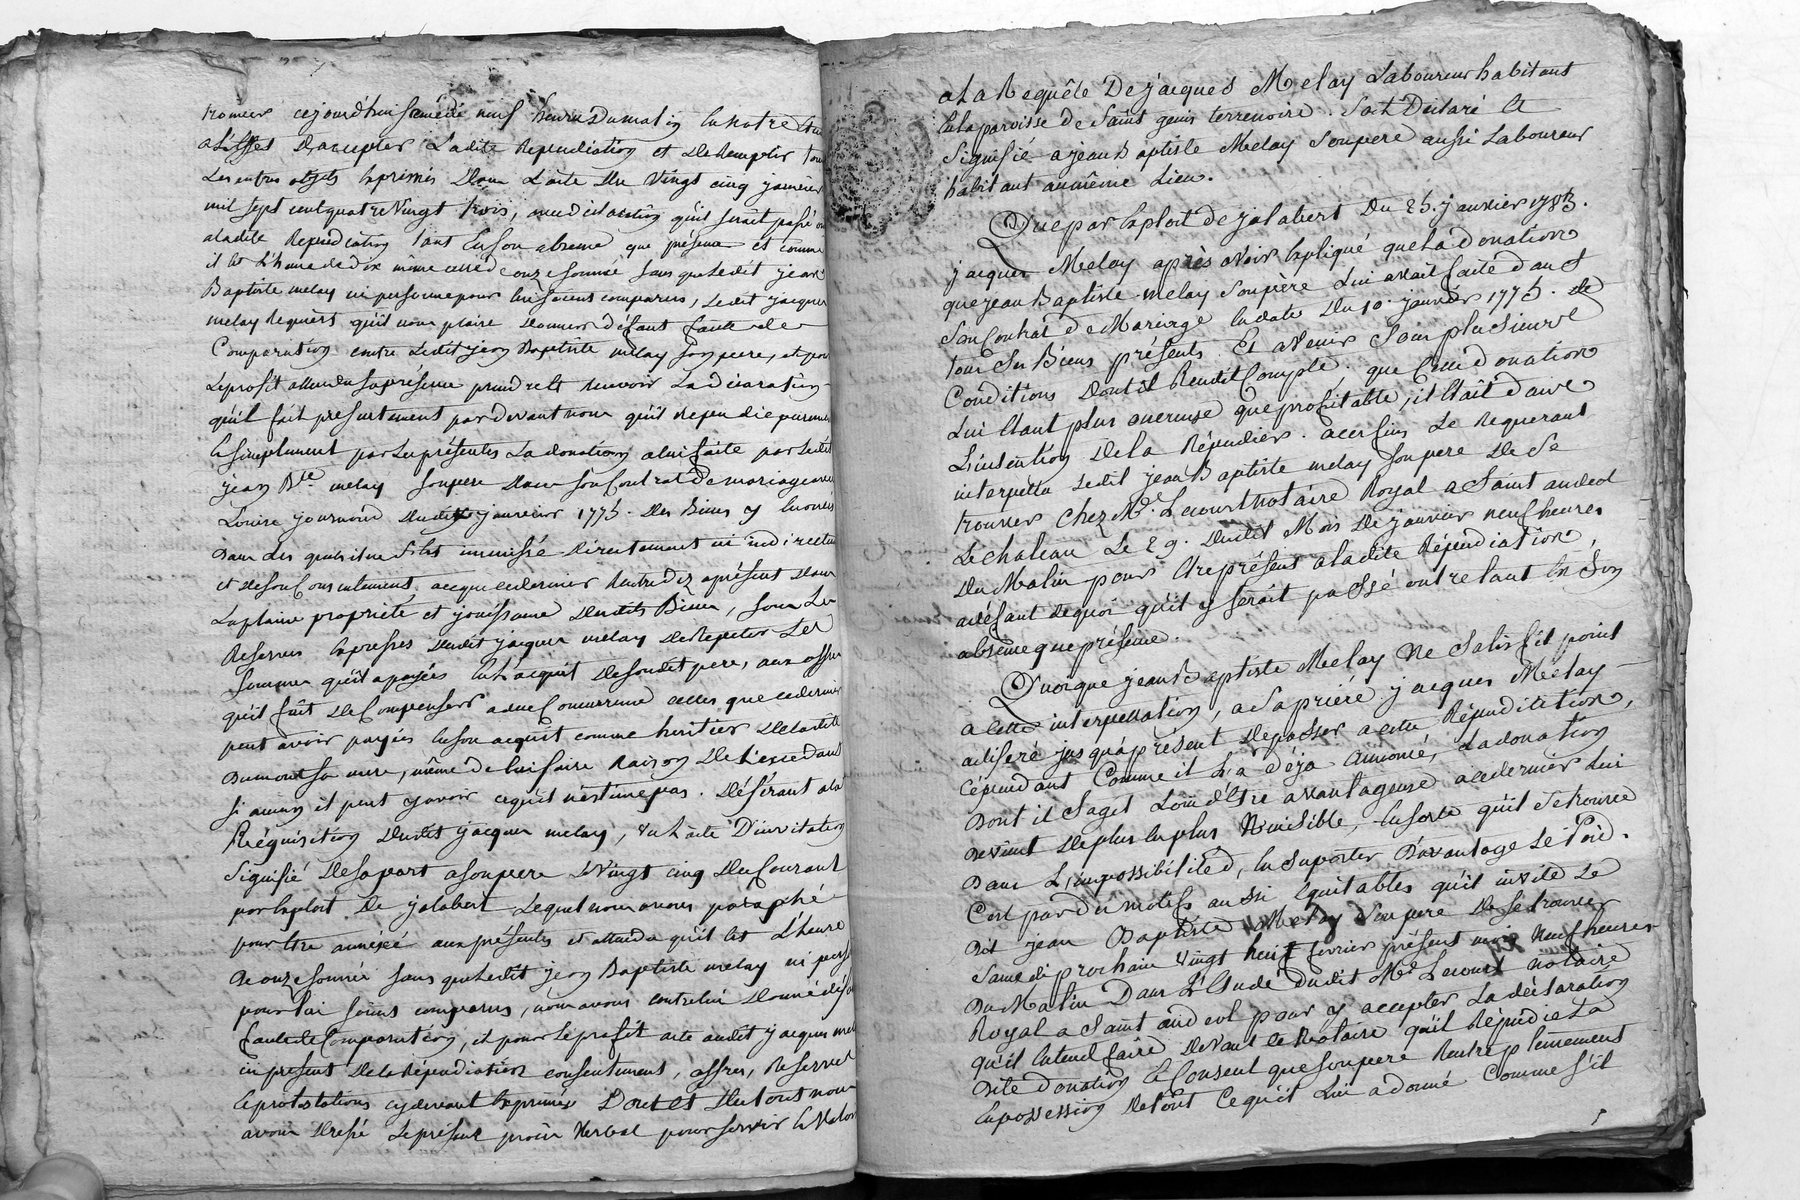 trouver cejourd'hui samedi neuf heures Du matin en notre
a l'effet D'accepter Ladite Repudiation et De Remplir tous
Les autres objets Exprimés Dans L'acte Du Vingt cinq janvier
mil sept cent quatre Vingt trois, avec declaration qu'il seroit passé
aladite Repudiation tant En son absence que présence et comme
il est L'heure de dix même celle d'onze sonnée sans que Ledit jean
Baptiste melay ni personne pour lui soient comparus, Ledit jacques
melay Requiert qu'il nous plaise Donner Défaut faute de
Comparution contre Ledit jean Baptiste melay son pere, et pour
Le profit attendu sa présence prendre et recevoir La declaration
qu'il fait présentement par devant nous qu'il repudie purement
Et simplement par Les présentes La donation a lui faite par Ledit
jean Bte melay son pere Dans son Contrat De mariage avec
Louise journoud Dudit janvier 1775. Des Biens y énoncés
Dans Les quels il ne s'est immissé Directement ni indirectement
et De son Consentement, acque ce dernier Rentre dez a présent Dans
La plaine propriété et jouissance Desdits Biens, sous Les
Reserves Expresses Dudit jacques melay De Repeter Les
sommes qu'il a payées En L'acquit De son dit pere, aux offres
qu'il fait De Compenser a due Concurrence celles que ce dernier
peut avoir payées En son acquit comme heritier De
Dumont sa mere, même de lui faire Raison De L'excedant
si aucun il peut y avoir ce qu'il n'estime pas. Déférant a la
Réquisition Dudit jacques melay, vu L'acte D'invitation
Signifié De sa part a son pere Le Vingt cinq Du Courant
par Exploit De jalabert Lequel nous avons paraphé
pour Etre annéxé aux présentes et attendu qu'il est L'heure
De onze sonnée sans que Ledit jean Baptiste melay ni
pour lui soient comparus, nous avons contre lui Donné
faute de Comparution, et pour Le profit acte audit jacques
ici présent De la Répudiation consentement, offres, Reserves
Et protestations cydevant Exprimés Dont et Du tout nous
avons Dressé Le présent procès Verbal pour servir Et Valoir
A La Requête De jacques Melay Laboureur habitant
En La paroisse de Saint genis terrenoire. Soit Declaré Et
Signifié a jean Baptiste Melay Son pere aussi Laboureur
habitant au même Lieu.
Que par Exploit de jalabert Du 25. janvier 1783.
jacques Melay après avoir Expliqué que La donation
que jean Baptiste melay Son père Lui avait faite dans
Son Contrat de Mariage En date Du 10. janvier 1775. de
tous Ses Biens présents Et avenir Sous plusieurs
Conditions Dont il Rendit Compte. que Cette donation
Lui Etant plus onereuse que profitable, il Etait dans
L'intention De la Répudier. a ces fins Le Requerant
interpella Ledit jean Baptiste melay Son pere De Se
trouver Chez Me. Lecourt notaire Royal a Saint andeol
Le chateau Le 29. Dudit Mois De janvier neuf heures
Du Matin pour Etre présent a ladite Répudiation,
a défaut De quoi qu'il y Serait passé outre tant En Son
absence que présence.
Quoique jean Baptiste Melay Ne Satisfit point
a Cette interpellation, a Sa prière jacques Melay
a diferé jusqu'aprésent De passer a cette Répudiation,
Cependant Comme il L'a déja annoncé, La donation
Dont il S'agit Loin d'Etre avantageuse a ce dernier Lui
Devient De plus En plus Nuisible, En sorte qu'il Se trouve
Dans L'impossibilité d'En Suporter D'avantage Le Poid.
C'est par des motifs aussi Equitables qu'il invite Le
Dit jean Baptiste Melay Son pere De Se trouver
Samedi prochain Vingt huit fevrier présent mois neuf heures
Du Matin Dans L'Etude dudit Me. Lecourt notaire
Royal a Saint andeol pour y accepter La déclaration
qu'il Entend faire Devant Ce Notaire qu'il Répudie La
Dite donation Et Consent que Son pere Rentre pleinement
En possession De tout Ce qu'il Lui a donné Comme S'il